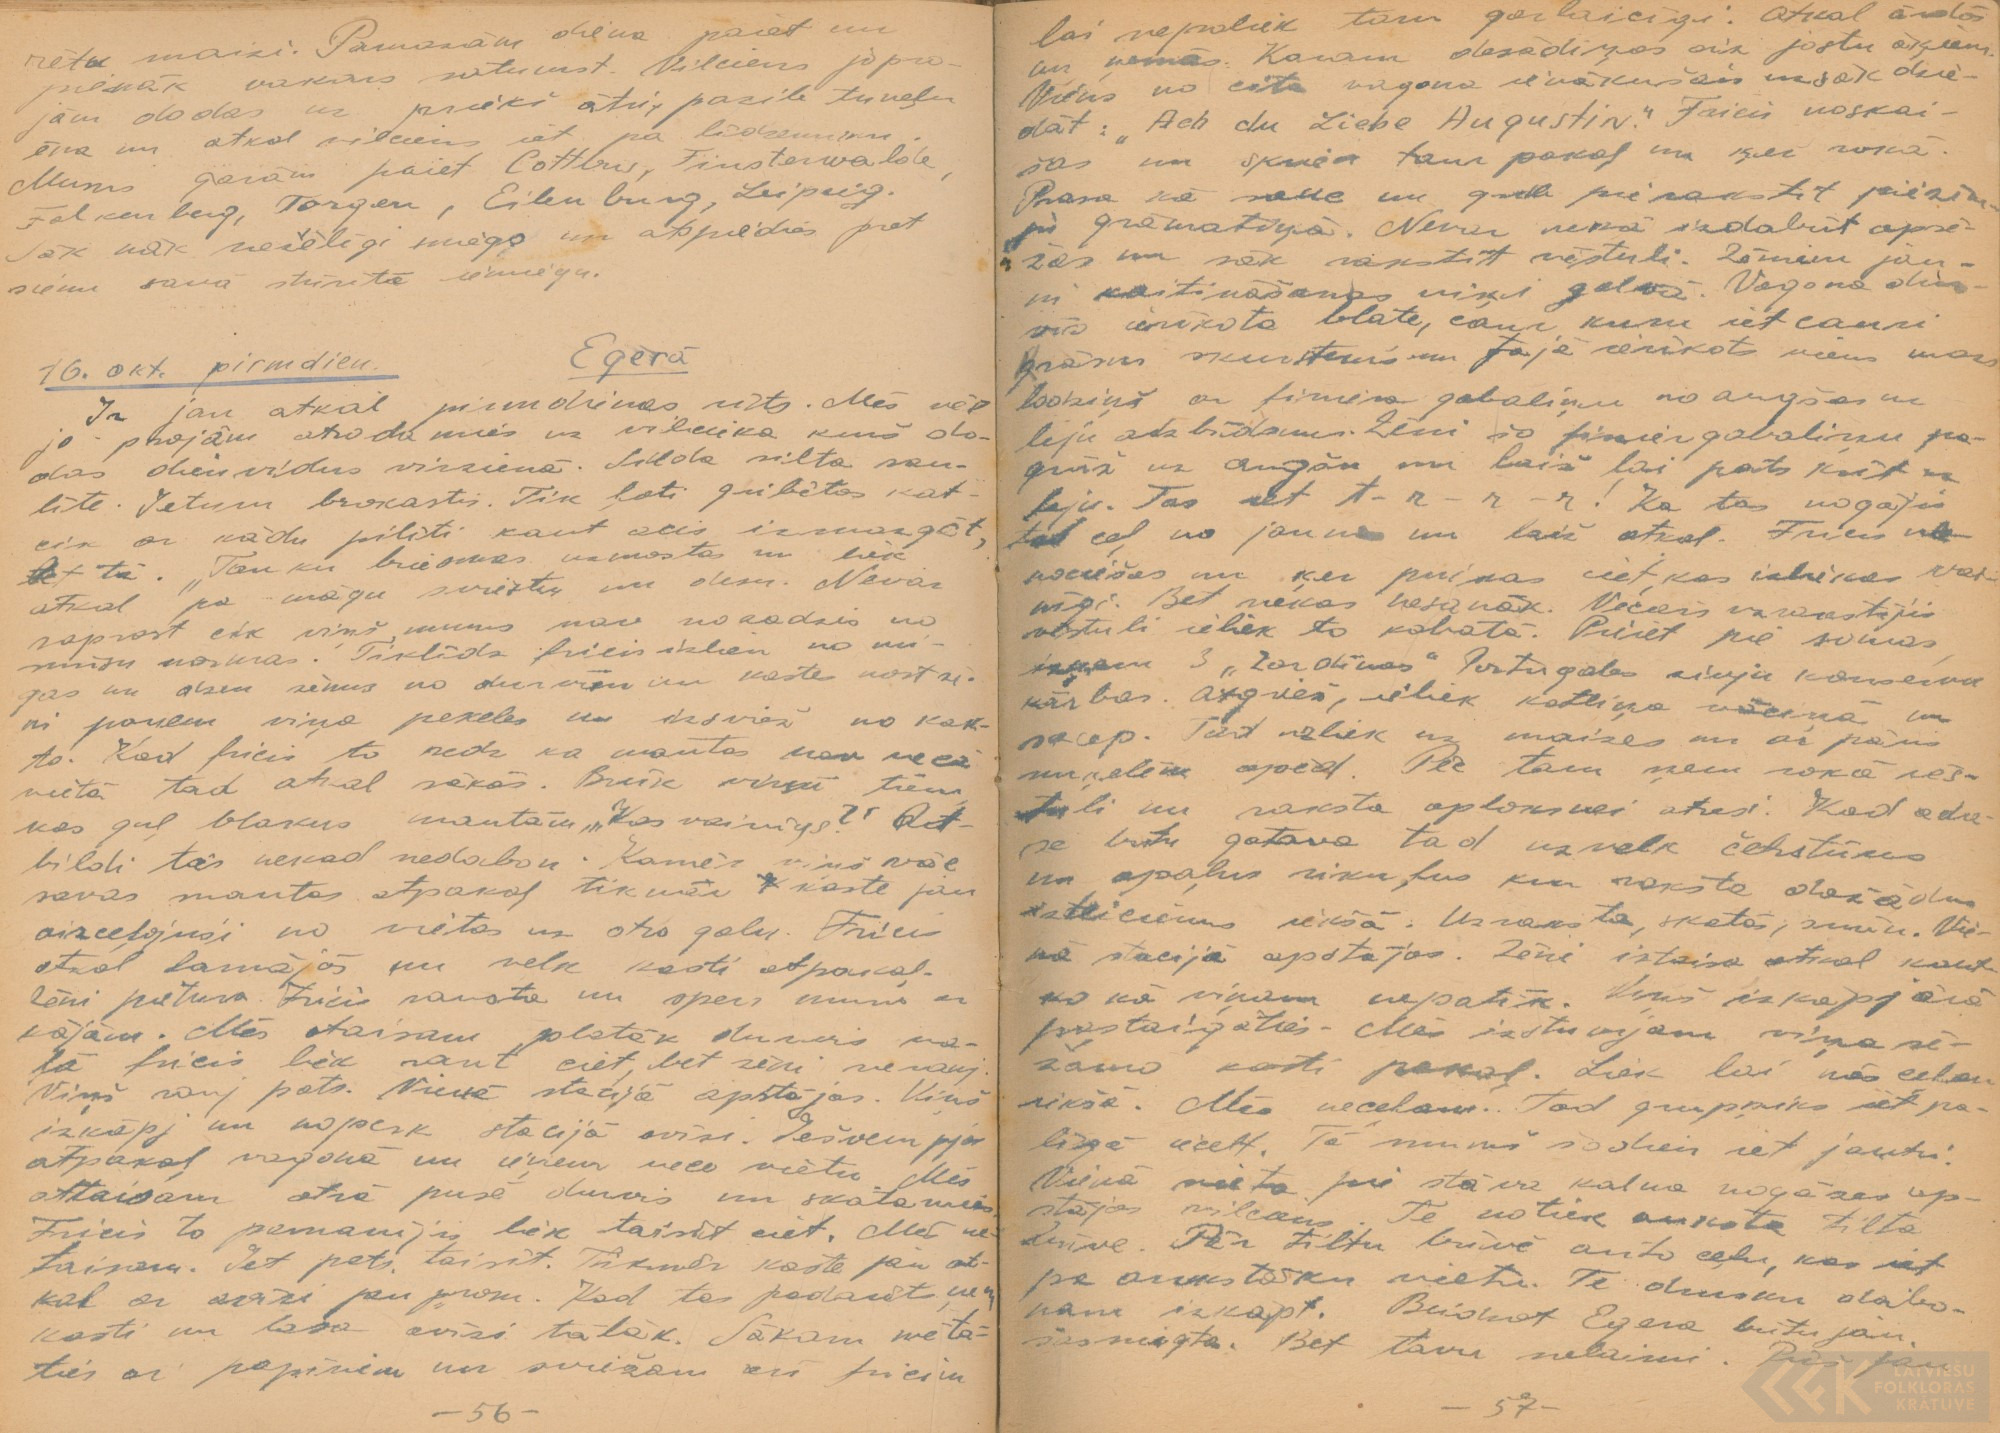 rētu maizi. Pamazām diena paiet un
pienāk vakars satumst. Vilciens jopro-
jām dodas uz priekš ātri, pazib tuneļu
ēna un atkal vilciens iet pa līdzenumu.
Mums garām paiet Cottbus, Finsterwalde,
Falkenberg, Torgau, Eilenburg, Leipzig.
Sāk nāk nežēlīgi miegs un atspiedies pret
sienu savā stūrītī iemiegu.
16. okt. pirmdien. Egerā
Ir jau atkal pirmdienas rīts. Mēs vēl
jo projām atrodamies uz vilcieka kurš do-
das dienvidus virzienā. Silda silta sau-
līte. Ieturu brokastis. Tik ļoti gribētos kat-
cik ar kādu pilīti kaut acis izmazgāt,
bet tā. „Tanku briesmas uzmostas un liek
atkal pa māgu sviestu un desu. Nevar
saprast cik viņš mums nav nozadzis no
mūsu normas. Tiklīdz fricis izlien no mi-
gas un dzen zēnus no durvīm un kastes nost zē-
ni paņem viņa pekeles un izsviež no kak-
ta. Kad fricis to redz ka mantas nav vecā
vietā tad atkal sākās. Brūk virsū tiem
kas guļ blakus mantām „Kas vainīgs?" At-
bildi tas nekad nedabon. Kamēr viņš vāc
savas mantas atpakaļ tikmēr kaste jau
aizceļojusi no vietas uz otro galu. Fricis
atkal lamājās un velk kasti atpakaļ.
Zēni pietura. Fricis rausta un sper mums ar
kājām. Mēs ataisam platāk durvis va-
lā fricis liek raut ciet, bet zēni nerauj.
Viņš rauj pats. Vienā stacijā apstājas. Viņš
izkāpj un nopērk stacijā avīzi. Iešvempjas
atpakaļ vagonā un ieņem veco vietu. Mēs
attaisam otrā pusē durvis un skatamies.
Fricis to pamanījis liek taisīt ciet. Mēs ne-
taisam. Iet pats taisīt. Tikmēr kaste jau at-
kal ar avīzi jau prom. Kad tas padarīts ņem
kasti un lasa avīzi tālāk. Sākam mētā-
ties ar papīriem un sviežam arī fricim
—56—
lai nepaliek tam garlaicīgi. Atkal ārdās
un ņemās. Karam dažādiņas aiz jostu āķiem.
Viens no cita vagona ienākušais uzsāk dzie-
dāt: „Ach du Liebe Augustin." Fricis noskai-
šas un skrien tam pakaļ un ķer rokā.
Prasa kā sauc un grib pierakstīt piezīm-
ju grāmatiņā. Nevar nekā izdabūt apsē-
žas un sāk rakstīt vēstuli. Zēniem jau-
ni kaitināšanas niķi galvā. Vagona dur-
vīs ierīkota blate, caur kuru iet cauri
krāsns skurstenis un tajā ierīkots viens mazs
lodziņš ar finiera gabaliņu no augšas un
leju aizbīdāms. Zēni šo finiergabaliņu pa-
grūž uz augšu un laiž lai pats krīt uz
leju. Tas iet t-r-r-r! Ka tas nogājis
tad ceļ no jauna un laiž atkal. Fricis no-
nocietšas un ķer puikas ciet kas izliekas vai-
nīgi. Bet nekas nesanāk. Vecais uzrakstījis
vēstuli ieliek to kabatā. Pieiet pie somas
izņem 3 „Zardīnas" Portugāles zivju konservu
kārbas. Atgriež, ieliek katliņa vāciņā un
sacep. Tad uzliek uz maizes un ar pāris
muņelēm apēd. Pēc tam ņem rokā vēs-
tuli un raksta aploksnei adresi. Kad adre-
se būtu gatava tad uzvelk četrstūrus
un apaļus riņķus kur raksta dažādus
izteicienus iekšā. Uzraksta, skatās, smin. Vie-
nā stacijā apstājas. Zēni iztaisa atkal kaut
ko kā viņam nepatīk. Viņš izkāpj ārā
pastaigāties. Mēs izstumjam viņa sē-
žamo kasti pakaļ. Liek lai mēs ceļam
iekšā. Mēs neceļam. Tad grupniks iet pa-
līgā iecelt. Tā mums šodien iet jautri.
Vienā vietā pie stāva kalna nogāzes ap-
stājas vilciens. Te notiek auksta tilta
būve. Pār tiltu būvē auto ceļu, kas iet
pa augstāku vietu. Te drusku dabū-
nam izkāpt. Braucot Egera būtu jau
sasniegta. Bet tavu nelaimi. Pūš jau
—57—
LATVIEŠU
FOLKLORAS
KRĀTUVE